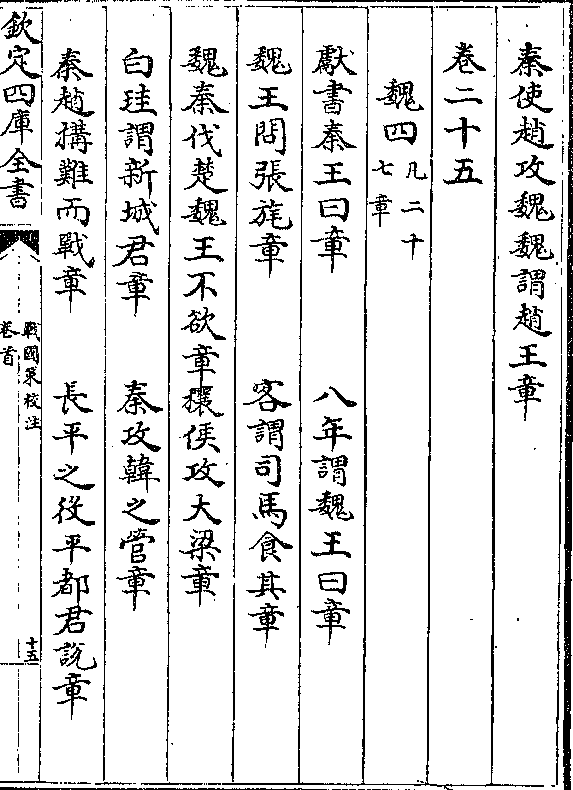 秦使趙攻魏魏謂趙王章
卷二十五
魏四凡二十七章
獻書秦王曰章　八年謂魏王曰章
魏王問張旄章　客謂司馬食其章
魏秦伐楚魏王不欲章穰侯攻大梁章
白珪謂新城君章　秦攻韓之管章
秦趙搆難而戰章　長平之役平都君説章
欽定四庫全書
戰國策校注
卷首
十五